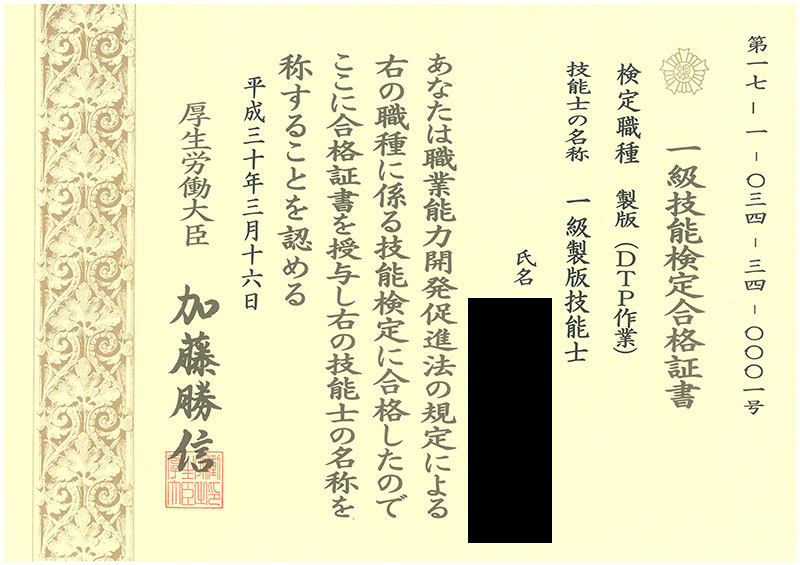 第一七－一－〇三四－三四－〇〇〇一号
一級技能検定合格証書
検定職種 製版（DTP作業）
技能士の名称 一級製版技能士
氏名
あなたは職業能力開発促進法の規定による
右の職種に係る技能検定に合格したので
ここに合格証書を授与し右の技能士の名称を
称することを認める
平成三十年三月十六日
厚生労働大臣 加藤勝信